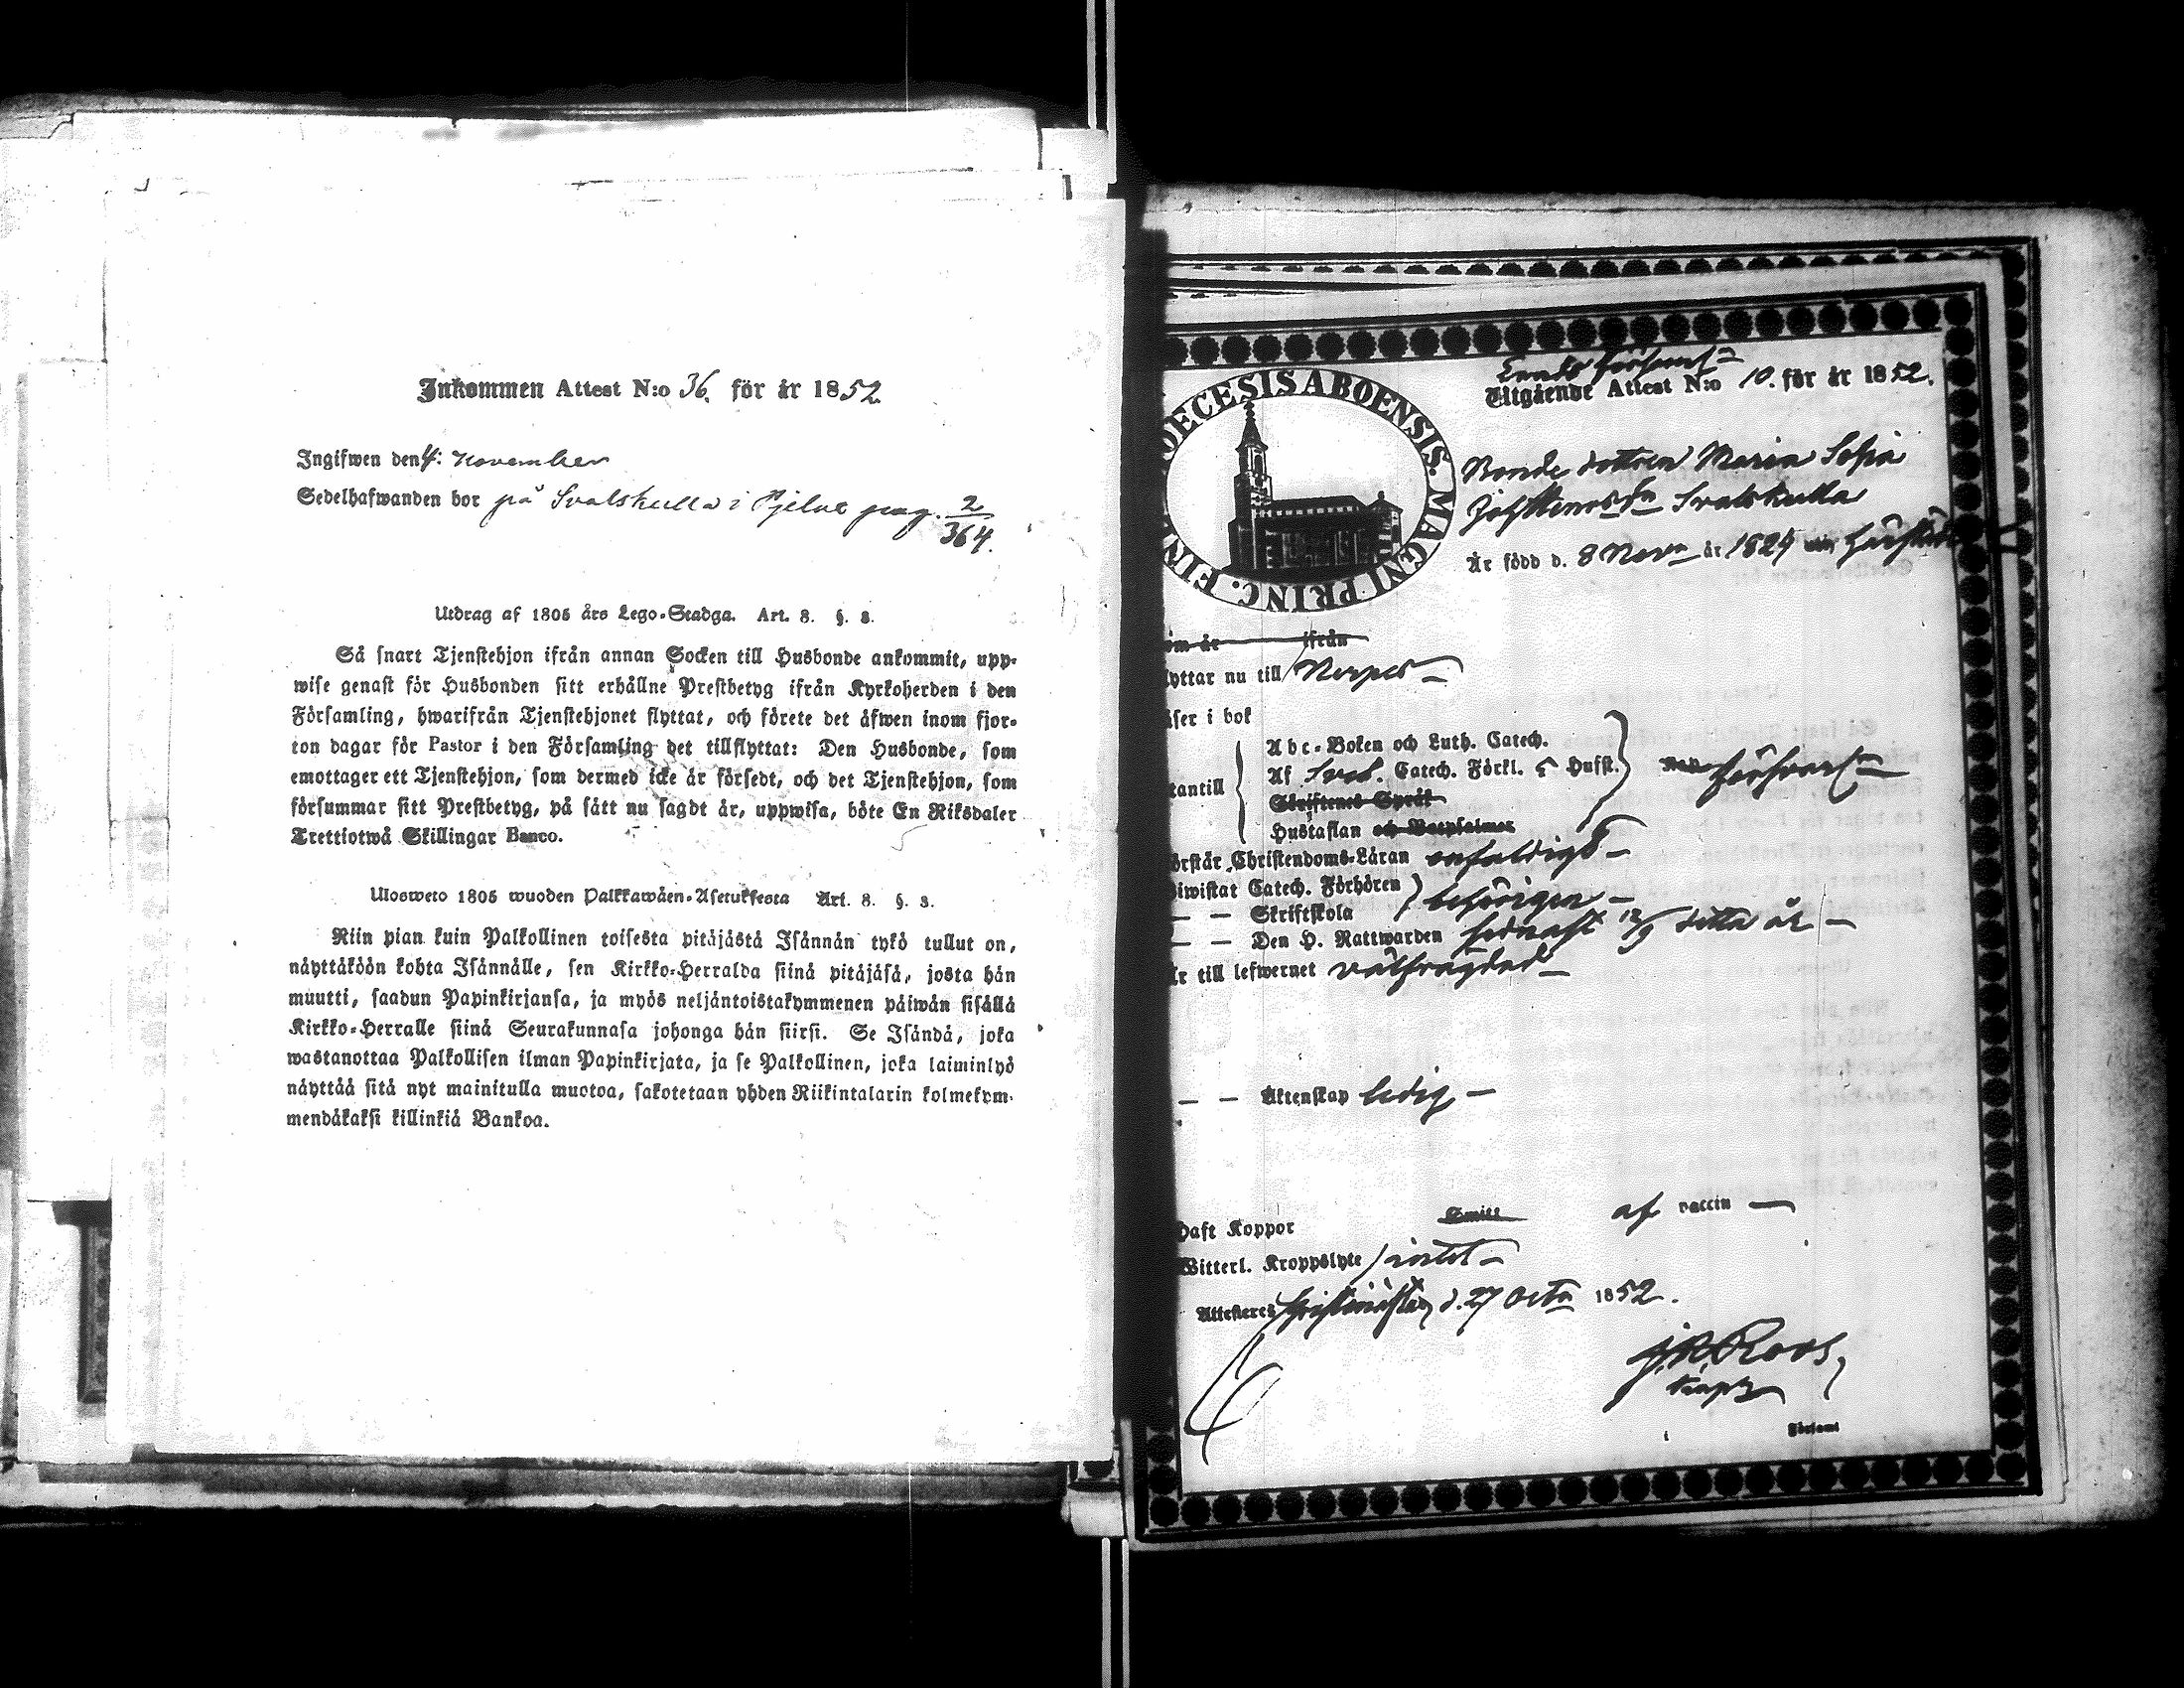 Inkommen Attest N:o 36. för år 1852
Ingifwen den 4: November
Sedelhafwanden bor på Svalskulla i Pjelax pag. 2/364.
Utdrag af 1805 års Lego-Stadga. Art. 8. §. 3.
Så snart Tjenstehjon ifrån annan Socken till Husbonde ankommit, upp-
wise genast för Husbonden sitt erhållne Prestbetyg ifrån Kyrkoherden i den
Församling, hwarifrån Tjenstehjonet flyttat, och förete det äfwen inom fjor-
ton dagar för Pastor i den Församling det tillflyttat: Den Husbonde, som
emottager ett Tjenstehjon, som dermed icke är försedt, och det Tjenstehjon, som
försummar sitt Prestbetyg, på sätt nu sagdt är, uppwisa, böte En Riksdaler
Trettiotwå Skillingar Banco.
Ulosweto 1805 wuoden Palkkawäen-Asetuksesta Art. 8. §. 3.
Niin pian kuin Palkollinen toisesta pitäjästä Isännän tykö tullut on,
näyttäköön kohta Isännälle, sen Kirkko-Herralda siinä pitäjäsä, josta hän
muutti, saadun Papinkirjansa, ja myös neljäntoistakymmenen päiwän sisällä
Kirkko-Herralle siinä Seurakunnasa johonga hän siirsi. Se Isändä, joka
wastanottaa Palkollisen ilman Papinkirjata, ja se Palkollinen, joka laiminlyö
näyttää sitä nyt mainitulla muotoa, sakotetaan yhden Riikintalarin kolmekym-
mendäkaksi killinkiä Bankoa.
DECESIS ABOENSIS. MAGNI PRINC. FIN
Utgående Attest N:o 10. för år 1852.
Bonde dottren Maria Sofia
Svalskulla
Är född d. 8 Novr år 1829
om är ifrån
lyttar nu till Nerpes
äser i bok
Abc-Boken och Luth. Catech.
Af Sveb. Catech. Förkl. Hufst.
tantill
Skriftenes Språk
Hustaflan och Botpsalmer
örstår Christendoms-Läran enfaldigt
iwistat Catech. Förhören behörigen
— — Skriftskola
— — Den H. Nattwarden sednast 12/9 detta år
r till lefwernet välfrägdad
— — Äktenskap ledig
haft Koppor Smitt af vaccin
Witterl. Kroppslyte intet
Attesteres Christinæstad d. 27 Octr 1852.
Roos
i Församl